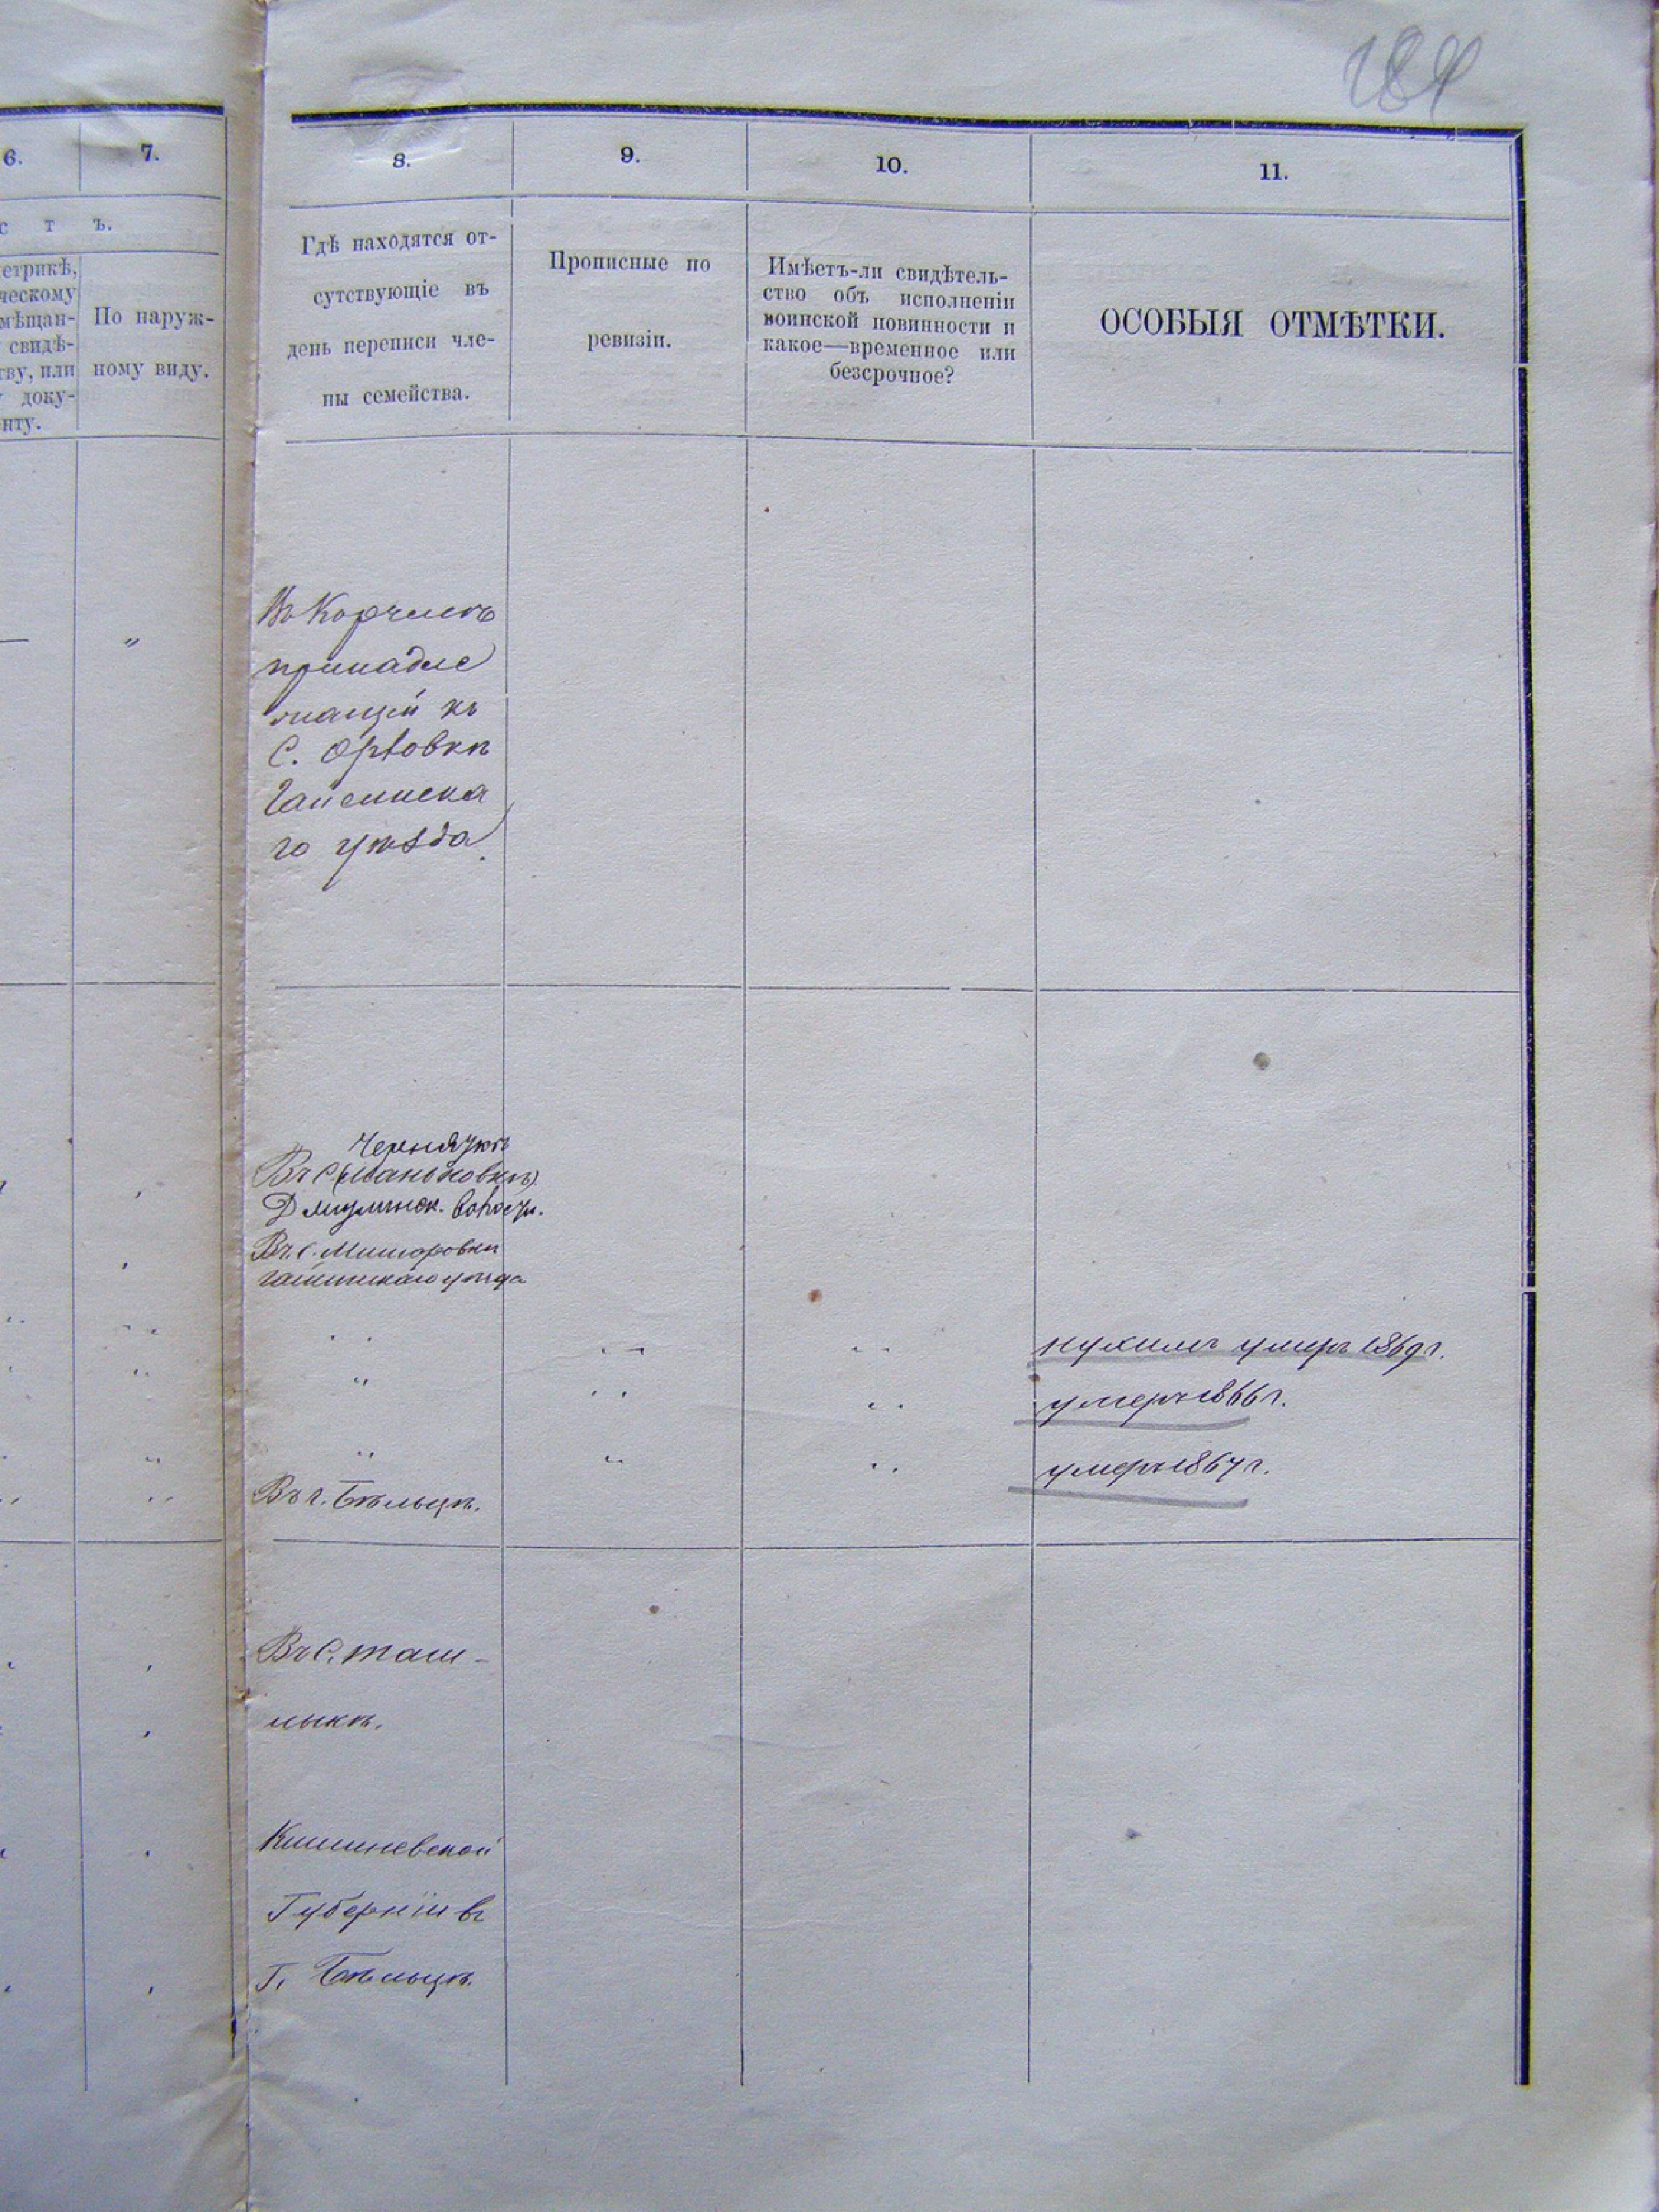 184
6.
7.
8.
9.
10.
11.
с т ъ.
етрикѣ,
ческому
мѣщан-
свидѣ-
тву, или
у доку-
нту.
По наруж-
ному виду.
Гдѣ находятся от-
сутствующіе въ
день переписи чле-
ны семейства.
Прописные по
ревизіи.
Имѣетъ-ли свидѣтель-
ство объ исполненіи
воинской повинности и
какое—временное или
безсрочное?
ОСОБЫЯ ОТМѢТКИ.
Въ Корчмѣ
принадле
жащей къ
С. Орловкѣ
Гайсинска
го уѣзда
Въ С.
волости.
Въ с.
Гайсинскаго уѣзда
Нухимъ умеръ 1869 г.
умеръ 1866 г.
умеръ 1867 г.
Въ г. Бѣльцѣ.
Въ С. Таш-
лыкѣ.
Кишиневской
Губерніи въ
Г. Бѣльцѣ.